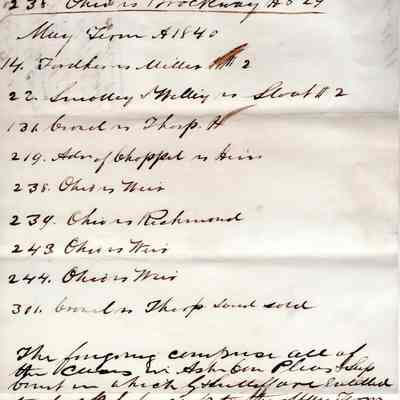 238. Ohio vs Brockway H 8 29
May Term A 1840
14. Fordher vs Miller H 2
22. Smolley & Willey vs Stoat H 2
131. Crowel vs Thorp. H
219. Adrs of Chappel vs Heirs
238. Ohio vs Weir
239. Ohio vs Richmond
243 Ohio vs Weir
244. Ohio vs Weir
311. Crowel vs Thorp Land sold
The forgoing comprise all of
the Cases in Ash Com Pleas & Sup
Court in which are Entitled